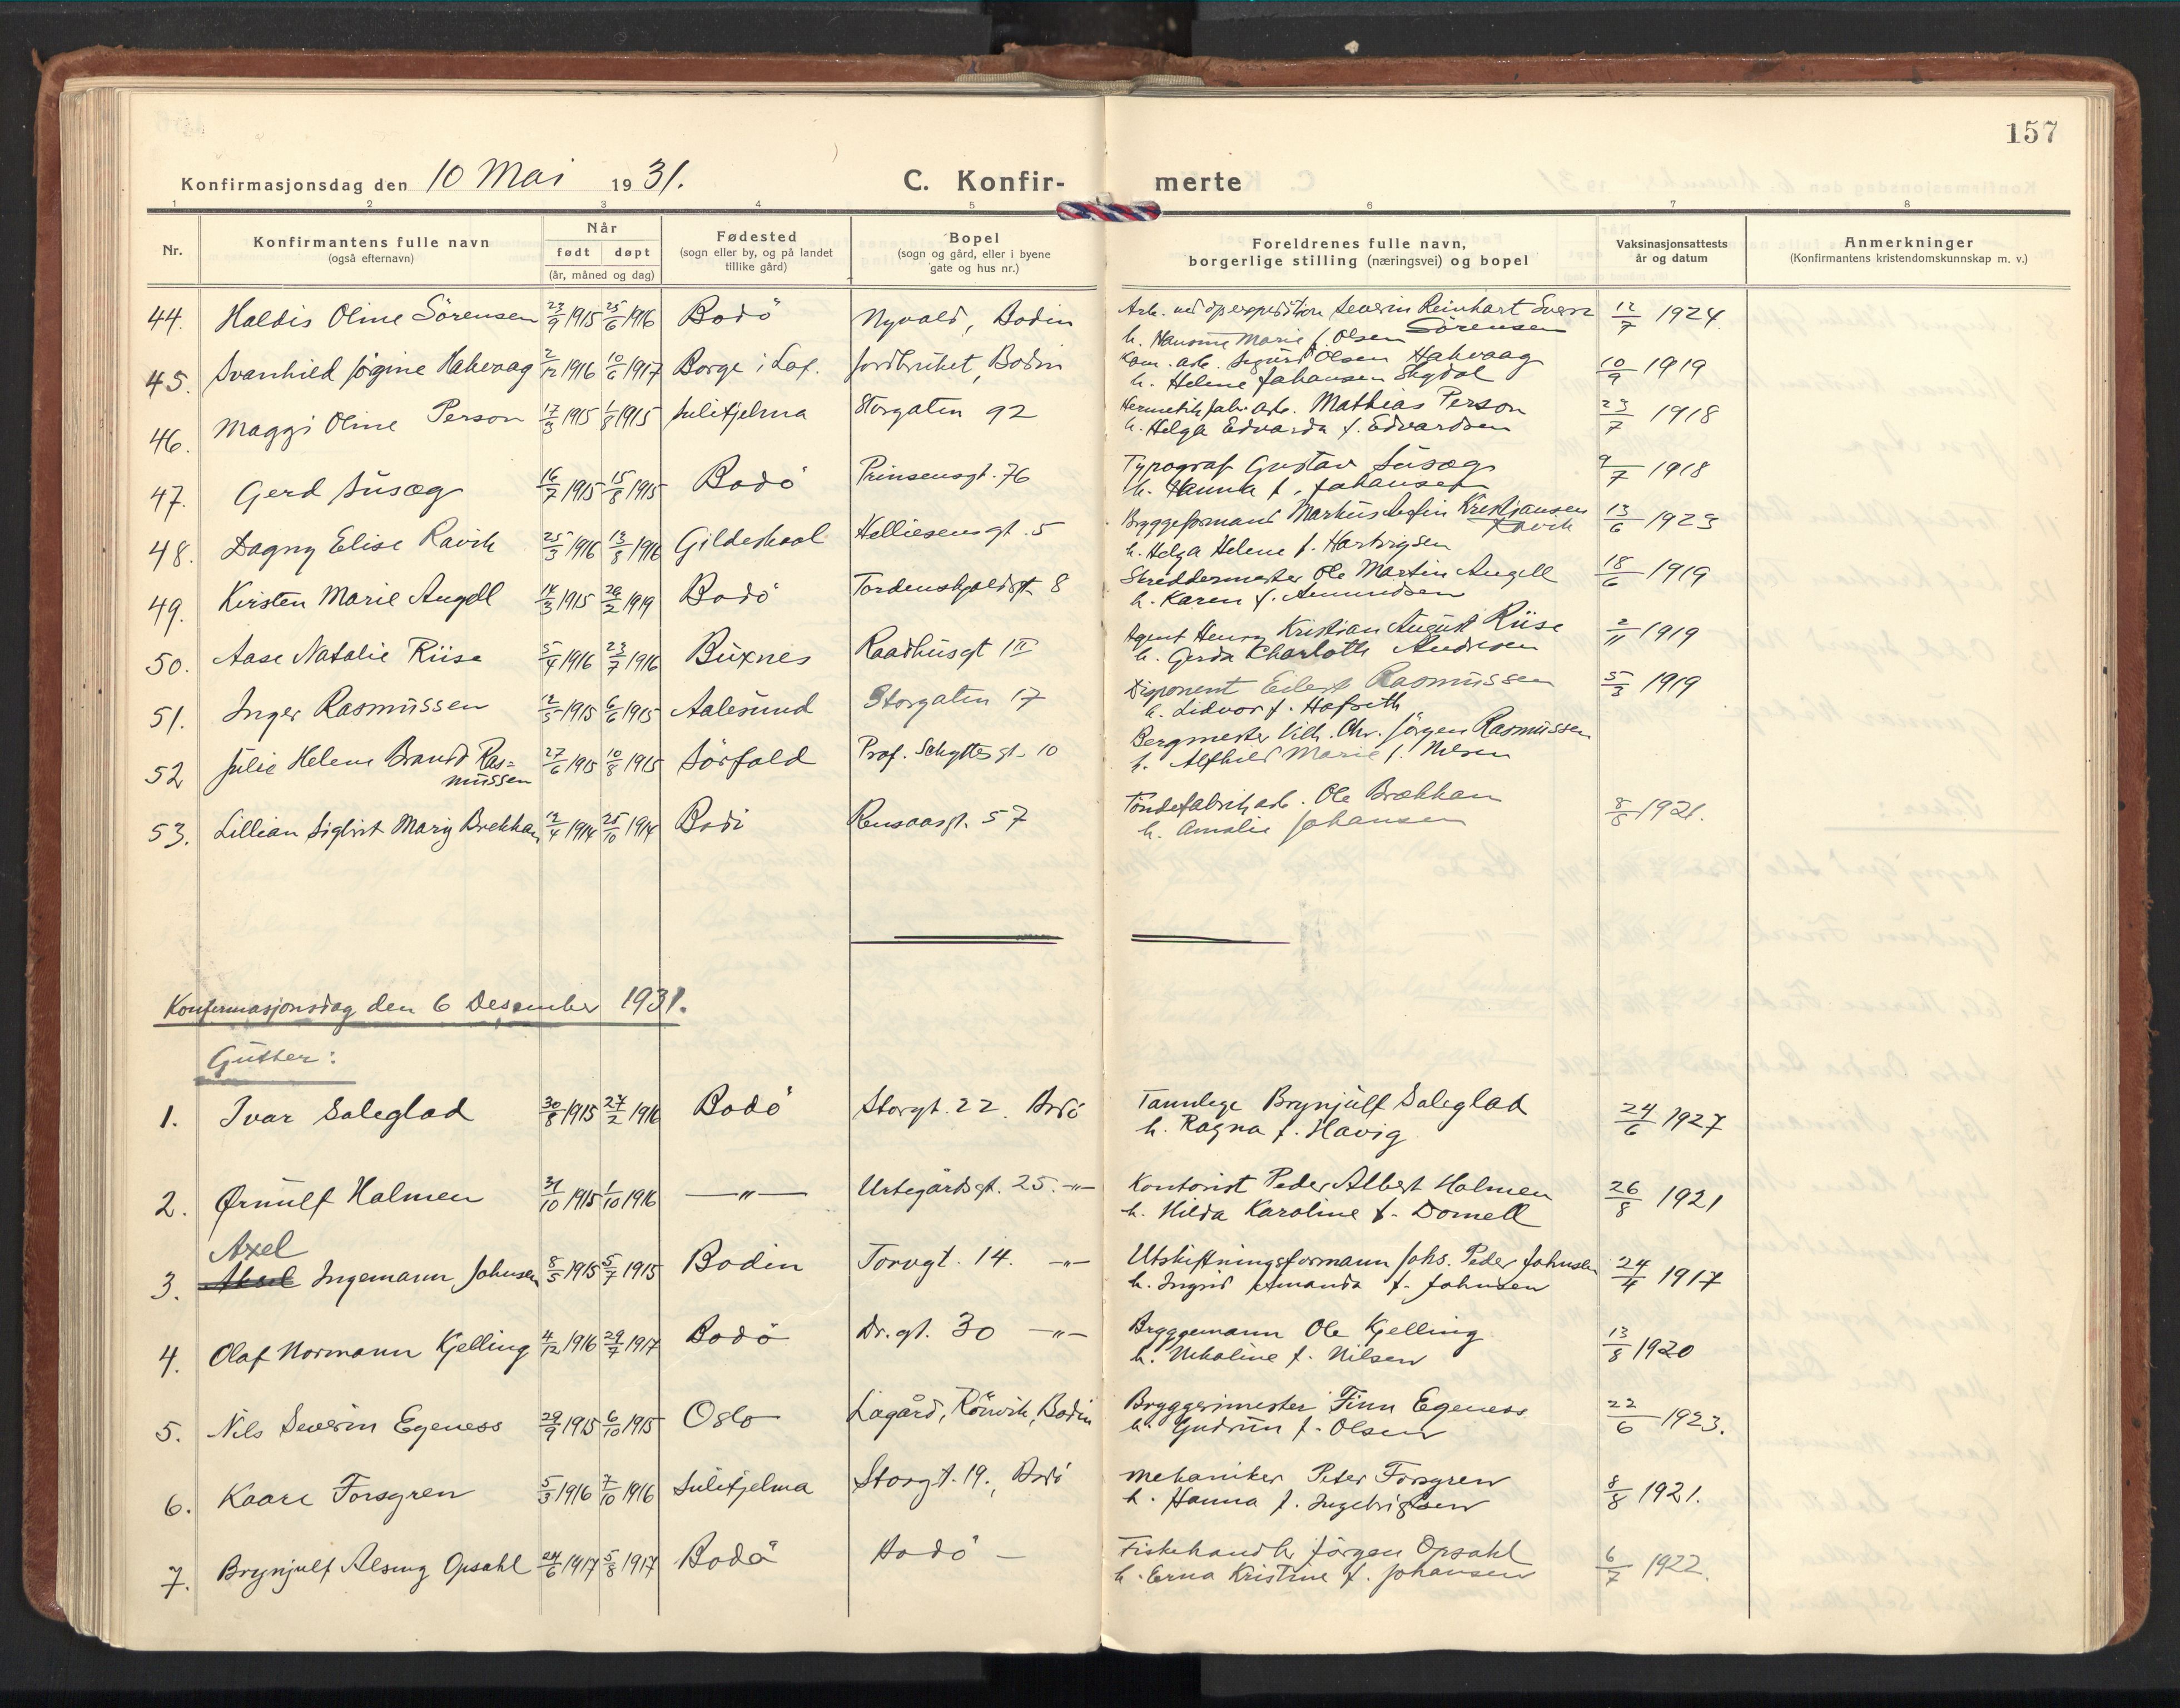 157
Konfirmasjonsdag den 10 Mai 1931.
C. Konfir- merte
1 2 3 4 5 6 7 8
Nr.
Konfirmantens fulle navn
(også efternavn)
Når
født døpt
(år, måned og dag)
Fødested
(sogn eller by, og på landet
tillike gård)
Bopel
(sogn og gård, eller i byene
gate og hus nr.)
Foreldrenes fulle navn,
borgerlige stilling (næringsvei) og bopel
Vaksinasjonsattests
år og datum
Anmerkninger
(Konfirmantens kristendomskunnskap m. v.)
44. Haldis Oline Sörensen 23/9 1915 25/6 1916 Bodö Nyvold, Bodin Arb. ved Severin Reinhart Sverr 12/7 1924.
h. Hansine Marie f. Olsen Sörensen
45. Svanhild Jögine Hakvaag 2/12 1916 10/6 1917 Borge i Lof. Jordbruket, Bodin Kom. arb. Sigurd Olsen Hakvaag 10/9 1919
h. Helene Johansen Skydal
46. Maggi Oline Person 17/3 1915 1/8 1915 Sulitjelma Storgaten 92 Hermetikfabr. arb. Mathias Person 23/7 1918
h. Helga Edvarda f. Edvardsen
47. Gerd Susæg 16/7 1915 15/8 1915 Bodö Prinsensgt. 76 Typograf Gustav Susæg 9/7 1918
h. Hanna f. Johansen
48. Dagny Elise Ravik 25/3 1916 13/8 1916 Gildeskaal Helliesensgt. 5 Bryggeformand Markus Kristjansen 13/6 1923
Ravik
h. Helga Helene f. Hartvigsen
49. Kirsten Marie Angell 14/3 1915 26/2 1919 Bodö Tordenskjoldsgt. 8 Skreddermester Ole Martin Angell 18/6 1919
h. Karen f. Amundsen
50. Aase Natalie Riise 5/4 1916 23/7 1916 Buxnes Raadhusgt 1II Agent Henry Kristian August Riise 2/11 1919
h. Gerda Charlotte Andresen
51. Inger Rasmussen 12/3 1915 6/6 1915 Aalesund Storgaten 17 Disponent Eilert Rasmussen 5/3 1919
h. Lidvor f. Hofseth
52 Julie Helene Brandt Ras= 27/6 1915 10/8 1915 Sörfold Prof. Schyttes gt. 10 Bergmester Vilh. Chr. Jörgen Rasmussen
mussen
h. Alfhild Marie f. Nilsen
53. Lillian Sigbrit Mary Brekkan 12/4 1914 25/10 1914 Bodö Rensaasgt. 57 Töndefabrik arb. Ole Brækkan 8/8 1921.
h. Amalie Johansen
Konfirmasjonsdag den 6 Desember 1931.
Gutter:
1. Ivar Saleglad 30/8 1915 27/2 1916 Bodö Storgt. 22. Bodö Tannlege Brynjulf Saleglad 24/6 1927
h. Ragna f. Havig
2. Ørnulf Holmen 31/10 1915 1/10 1916 —"— Urtegårdsgt. 25. -"- Kontorist Peder Albert Holmen 26/8 1921
h. Hilda Karoline f. Domell
Axel
3. Aksel Ingemann Johnsen 8/5 1915 5/7 1915 Bodin Torvgt. 14. -"- Utskiftningsformann Johs. Peder Johnsen 24/4 1917
h. Ingrid Amanda f. Johnsen
4. Olaf Normann Kjelling 4/12 1916 29/7 1917 Bodö Dr.gt. 30 -"- Bryggemann Ole Kjelling 13/8 1920
h. Nikoline f. Nilsen
5. Nils Severin Egeness 29/9 1915 6/10 1915 Oslo Lagård, Rönvik, Bodin Bryggerimester Finn Egeness 22/6 1923.
h. Gudrun f. Olsen
6. Kaare Forsgren 5/3 1916 7/10 1916 Sulitjelma Storgt. 19., Bodö Mekaniker Peter Forsgren 8/8 1921.
h. Hanna f. Ingebrigtsen
7. Brynjulf Alsing Opsahl 24/6 1917 5/8 1917 Bodö Bodö - Fiskehandler Jörgen Opsahl 6/7 1922.
h. Erna Kristine f. Johansen